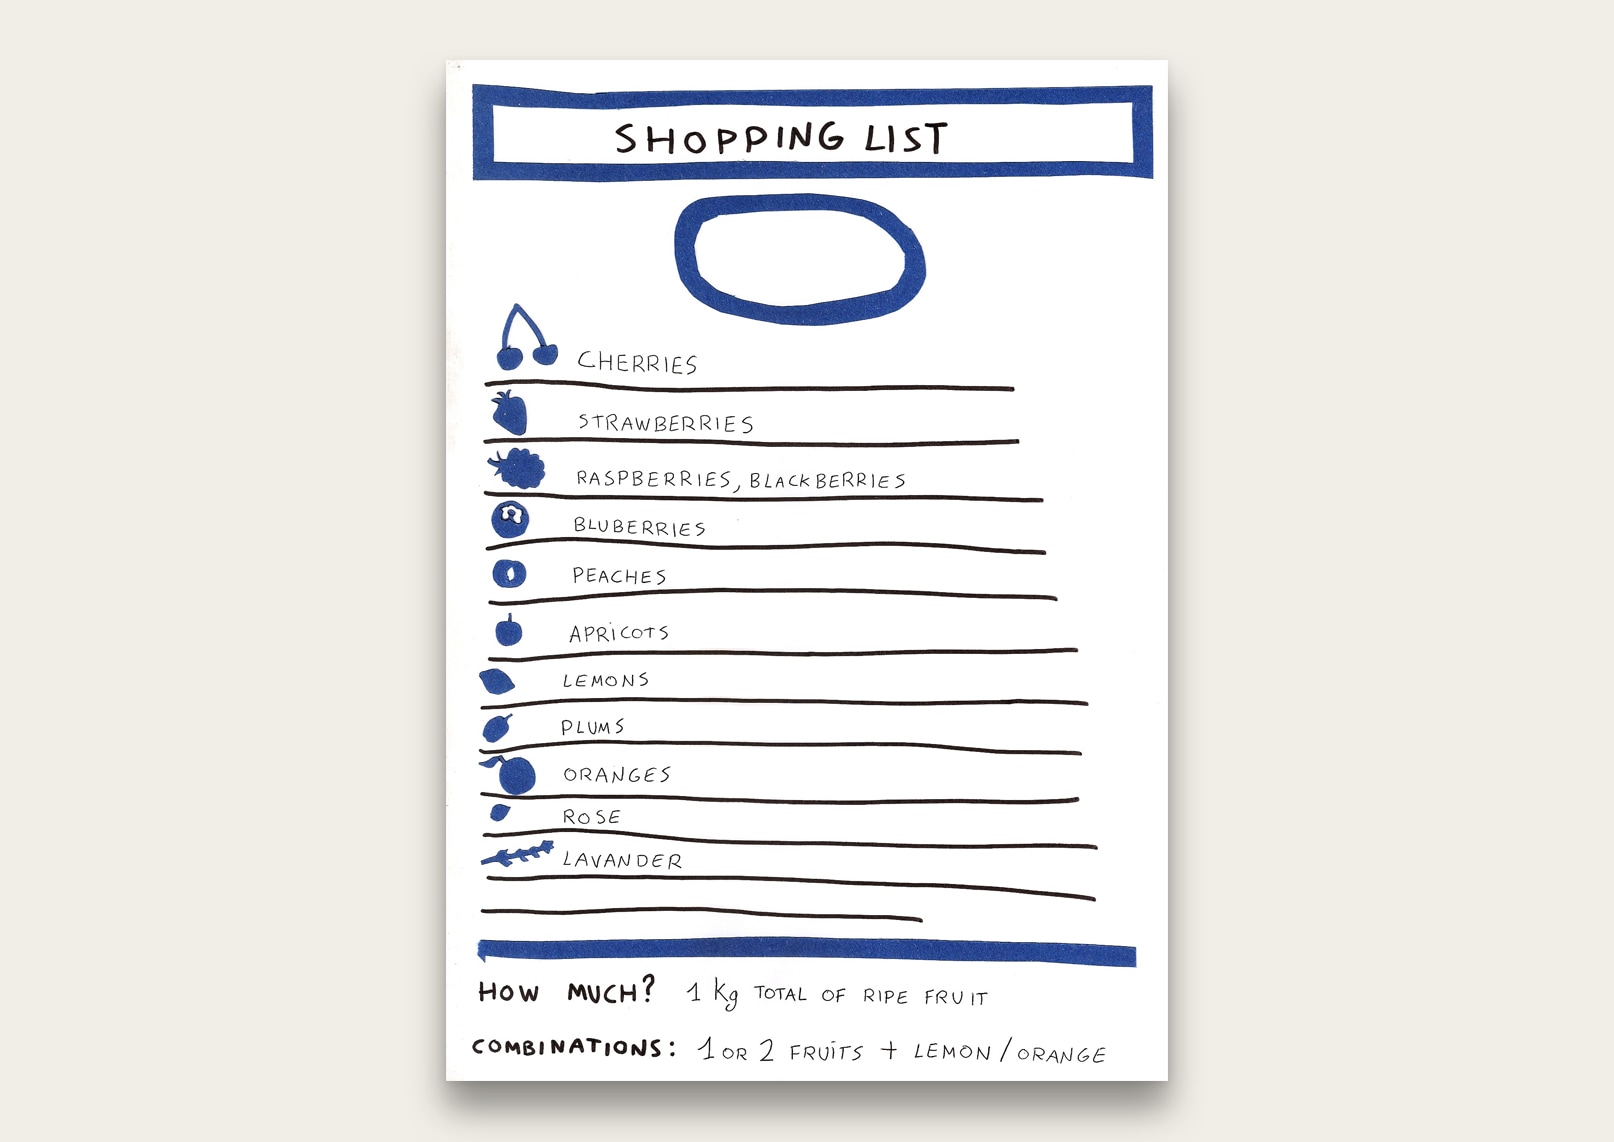 SHOPPING LIST
CHERRIES
STRAWBERRIES
RASPBERRIES, BLACKBERRIES
BLUBERRIES
PEACHES
APRiCOTS
LEMONS
PLUMS
ORANGES
ROSE
LAVANDER
HOW MUCH? 1 Kg TOTAL OF RIPE FRUIT
COMBINATIONS: 1 OR 2 FRUiTS + LEMON/ORANGE